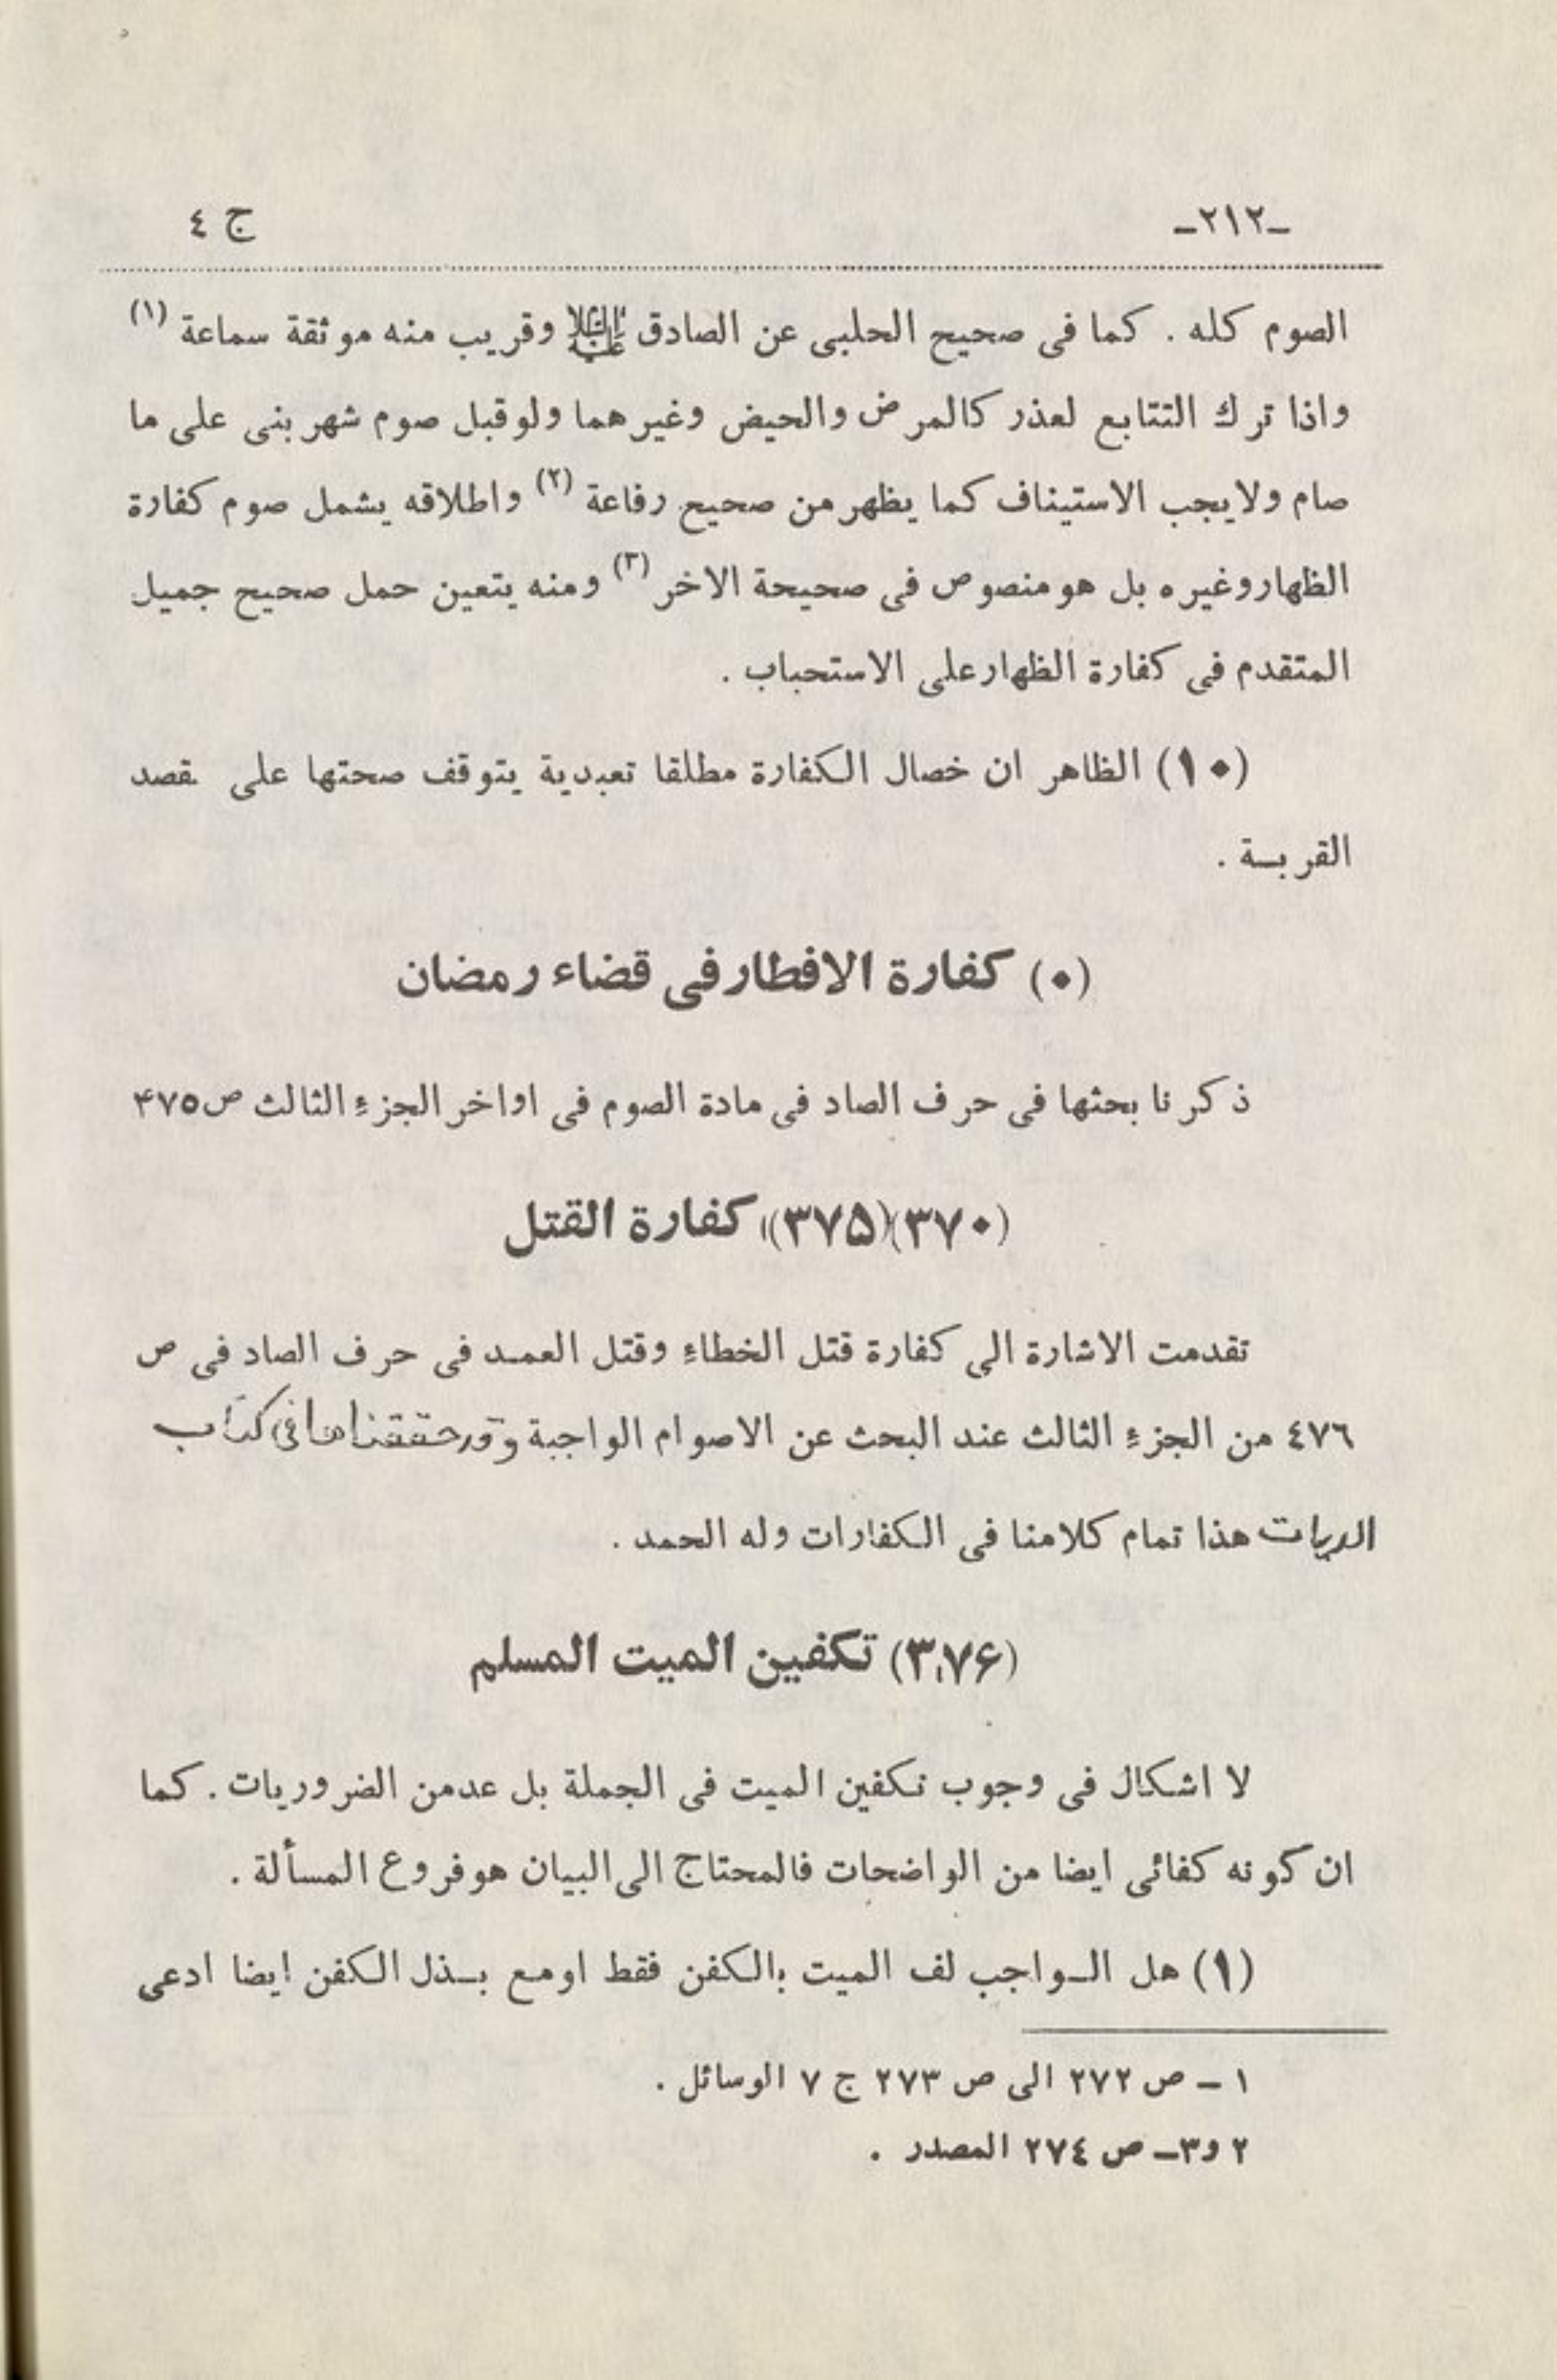 ـ٢١٢ـ
ج ٤
الصوم كله . كما فى صحيح الحلبى عن الصادق عليه السلام وقريب منه موثقة سماعة (١)
واذا ترك التتابع لعذر كالمرض والحيض وغيرهما ولوقبل صوم شهر بنى على ما
صام ولايجب الاستيناف كما يظهر من صحيح رفاعة (٢) واطلاقه يشمل صوم كفارة
الظهار وغيره بل هو منصوص فى صحيحة الاخر (٣) ومنه يتعين حمل صحيح جميل
المتقدم فى كفارة الظهار على الاستحباب .
(١٠) الظاهر ان خصال الكفارة مطلقا تعبدية يتوقف صحتها على قصد
القربـة .
(٠) كفارة الافطار فى قضاء رمضان
ذكرنا بحثها فى حرف الصاد فى مادة الصوم فى اواخر الجزء الثالث ص۴۷۵
(٣٧٠)(٣٧۵) كفارة القتل
تقدمت الاشارة الى كفارة قتل الخطاء وقتل العمـد فى حرف الصاد فى ص
٤٧٦ من الجزء الثالث عند البحث عن الاصوام الواجبة وقد حققناها فى كتاب
الديات هذا تمام كلامنا فى الكفارات وله الحمد .
(٣٧۶) تكفين الميت المسلم
لا اشكال فى وجوب تكفين الميت فى الجملة بل عدمن الضروريات . كما
ان كونه كفائى ايضا من الواضحات فالمحتاج الى البيان هو فروع المسألة .
(١) هل الـواجب لف الميت بالكفن فقط اومـع بـذل الكفن ايضا ادعى
١ ـ ص ٢٧٢ الى ص ٢٧٣ ج ٧ الوسائل .
٢ و٣ـ ص ٢٧٤ المصدر .